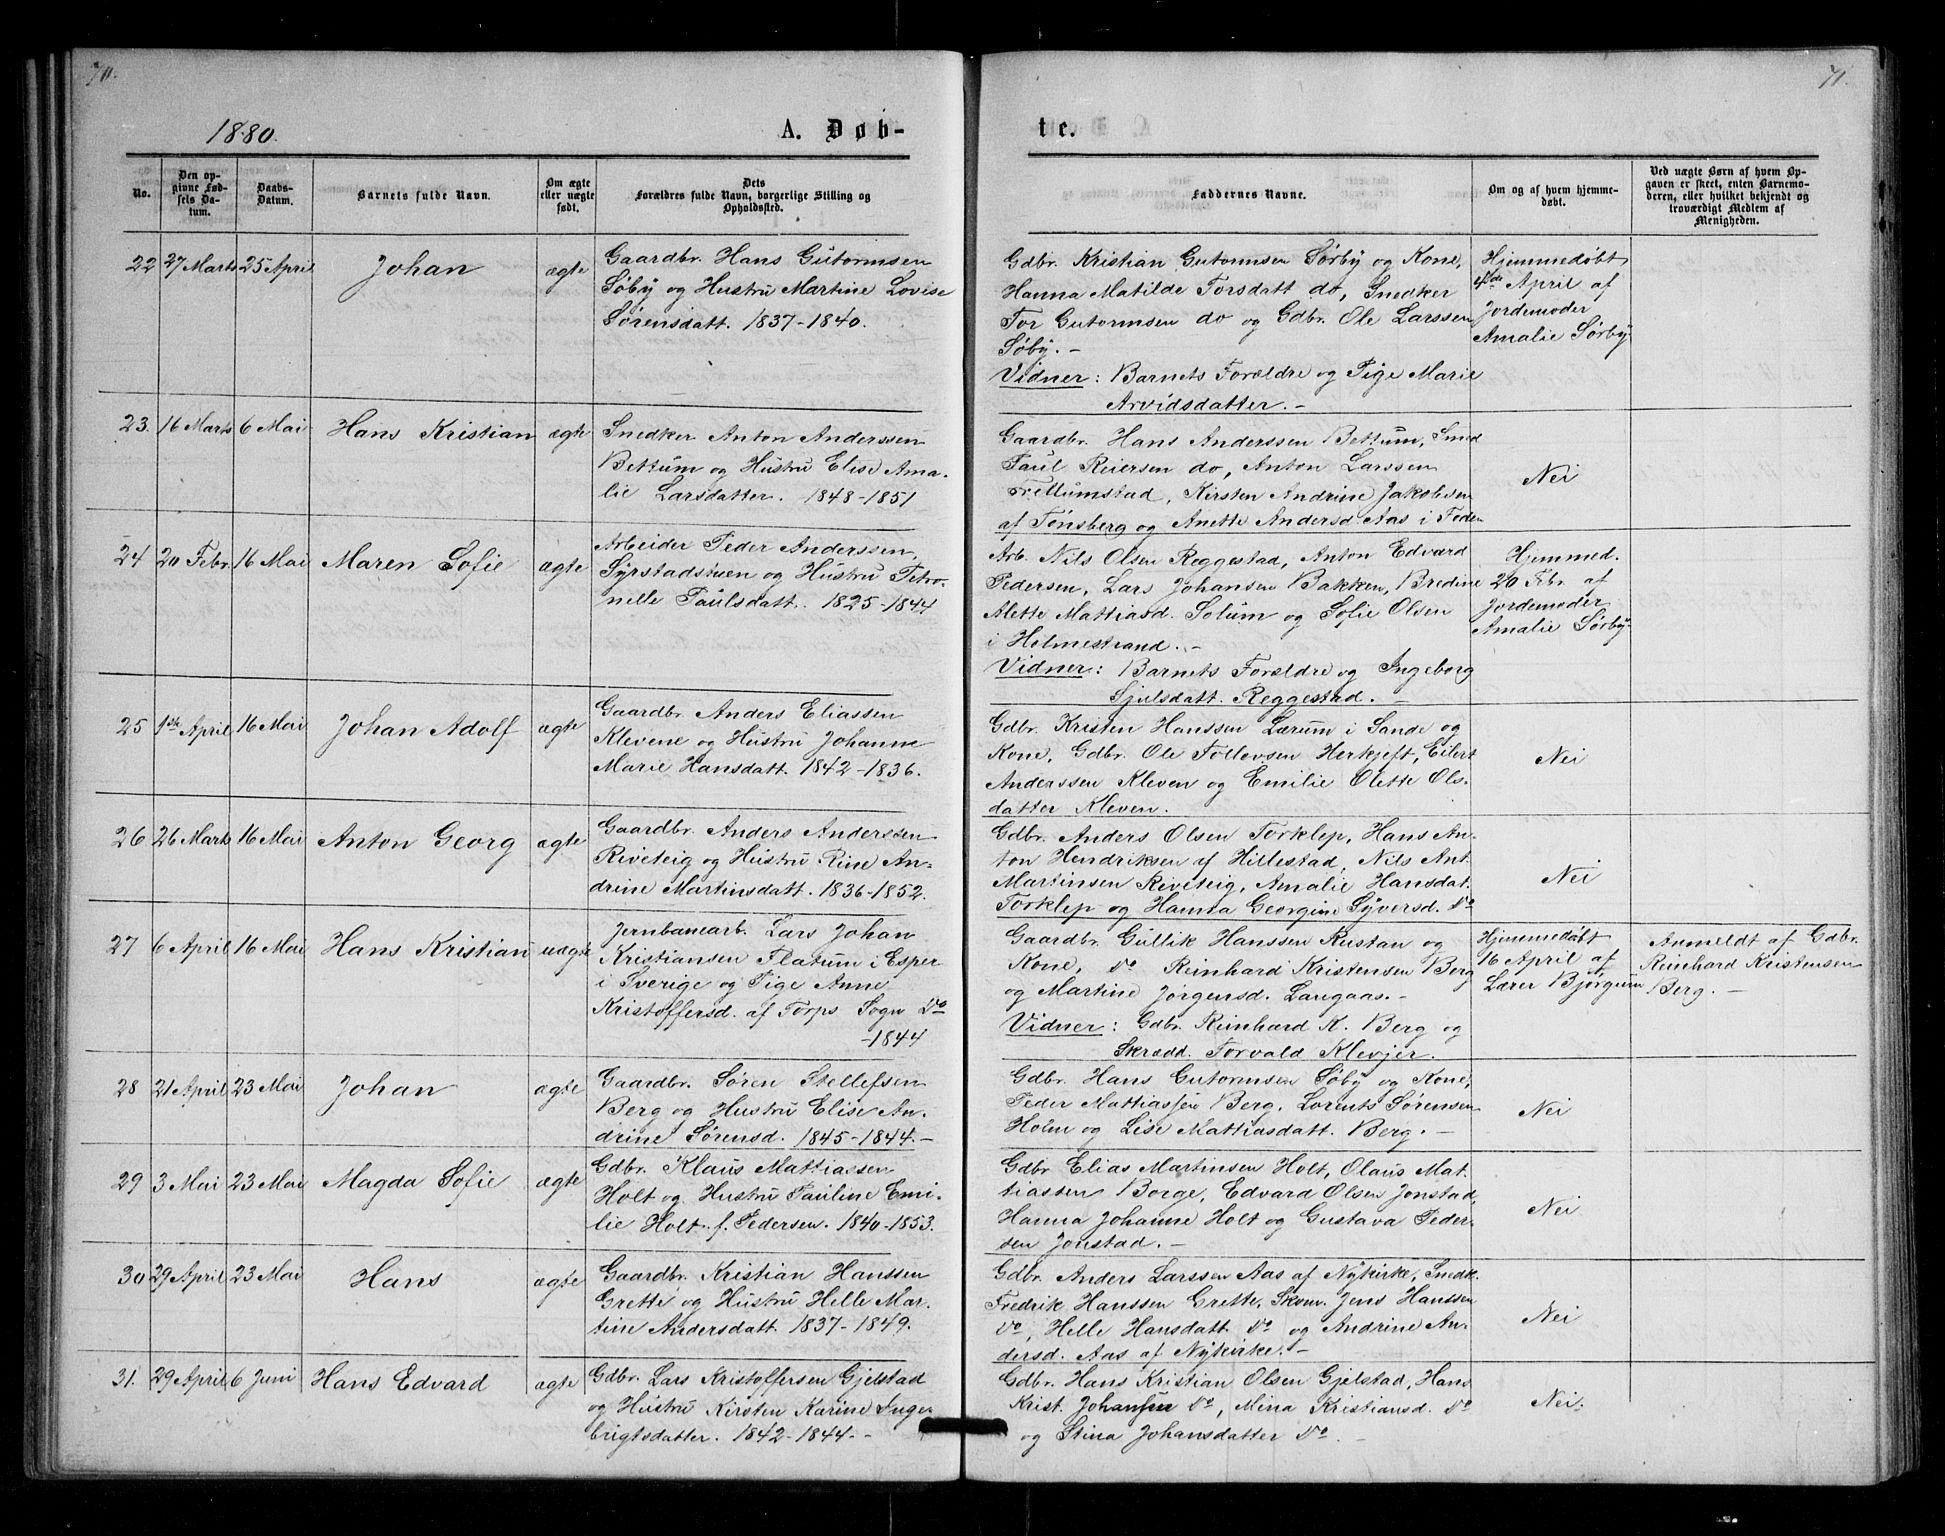 70.
1880.
A. Døb-
No.
Den op-
givne Fød-
sels Da-
tum.
Daabs-
Datum.
Barnets fulde Navn.
Om ægte
eller uægte
født.
Dets
Forældres fulde Navn, borgerlige Stilling og
Opholdssted.
22 27 Marts 25 April Johan ægte
Gaardbr. Hans Gutormsen
Söby og Hustru Martine Lovise
Sørensdatt. 1837-1840.
23. 16 Marts 6 Mai Hans Kristian ægte
Snedker Anton Anderssen
Bettum og Hustru Elise Ama-
lie Larsdatter. 1848-1851
24 20 Febr. 16 Mai Maren Sofie ægte
Arbeider Peder Anderssen,
Syrstadstuen og Hustru Petro-
nelle Paulsdatt. 1825-1844
25 1ste April 16 Mai Johan Adolf ægte
Gaardbr. Anders Eliassen
Klevene og Hustru Johanne
Marie Hansdatt. 1842-1836.
26 26 Marts 16 Mai Anton Georg ægte
Gaardbr. Anders Anderssen
Riveteig og Hustru Rine An-
drine Martinsdatt. 1836-1852.
27 6 April 16 Mai Hans Kristian uægte
Jernbanearb. Lars Johan
Kristiansen Flatum i Esper
i Sverige og Pige Anne
Kristoffersd. af Torps Sogn do
-1844
28 21 April 23 Mai Johan ægte
Gaardbr. Søren Stellefsen
Berg og Hustru Elise An-
drine Sørensd. 1845-1844.-
29 3 Mai 23 Mai Magda Sofie ægte
Gdbr. Klaus Mattiassen
Holt og Hustru Pauline Emi-
lie Holt f. Pedersen. 1840-1853.
30 29 April 23 Mai Hans ægte
Gaardbr. Kristian Hanssen
Grette og Hustru Helle Mar-
tine Andersdatt. 1837-1849.
31. 29 April 6 Juni Hans Edvard ægte
Gdbr. Lars Kristoffersen Gjelstad
og Hustru Kirsten Karine Inge-
brigtsdatter. 1842-1844.-
71.
te.
Faddernes Navne.
Om og af hvem hjemme-
døbt.
Ved uægte Børn af hvem Op-
gaven er skeet, enten Barnemo-
deren, eller hvilket bekjendt og
troværdigt Medlem af
Menigheden.
Gdbr. Kristian Gutormsen Sørby og Kone,
Hanna Matilde Torsdatt do, Snedker
Tor Gutormsen do og Gdbr. Ole Larssen
Söby.-
Vidner: Barnets Forældre og Pige Marie
Arvidsdatter.-
Hjemmedøbt
4de April af
Jordemoder
Amalie Sørby
Gaardbr. Hans Anderssen Bettum, Smed
Paul Reiersen do, Anton Larssen
Trellumstad, Kirsten Andrine Jakobsen
af Tønsberg og Anette Andersd. Aas i Foden
Nei
Arb. Nils Olsen Reggestad, Anton Edvard
Pedersen, Lars Johansen Bakken, Bredine
Alette Mattiasd. Solum og Sofie Olsen
i Holmestrand.-
Vidner: Barnets Forældre og Ingeborg
Sjulsdatt. Reggestad.-
Hjemmed.
20 Febr. af
Jordemoder
Amalie Sørby
Gdbr. Kristen Hanssen Lærum i Sande og
Kone, Gdbr. Ole Tollevsen Herkjeft, Eilert
Anderssen Kleven og Emilie Olette Ols-
datter Kleven.
Nei
Gdbr. Anders Olsen Torklep, Hans An-
ton Hendriksen af Hillestad, Nils Ant.
Martinsen Riveteig, Amalie Hansdat.
Torklep og Hanna Georgine Syversd. do
Nei
Gaardbr. Gullik Hanssen Rustan og
Kone, do Reinhard Kristensen Berg
og Martine Jørgensd. Langaas.-
Vidner: Gdbr. Reinhard K. Berg og
Skrædd. Torvald Klevjer.
Hjemmedøbt
16 April af
Lærer Bjørgum
Anmeldt af Gdbr.
Reinhard Kristensen
Berg.-
Gdbr. Hans Gutormsen Söby og Kone,
Peder Mattiassen Berg, Lorents Sørensen
Holm og Lise Mattiasdatt. Berg.-
Nei
Gdbr Elias Martinsen Holt, Olaus Mat-
tiassen Borge, Edvard Olsen Jonstad,
Hanna Johanne Holt og Gustava Peder-
sen Jonstad.-
Nei
Gdbr. Anders Larssen Aas af Nykirke, Snedk.
Fredrik Hanssen Grette, Skom. Jens Hanssen
do, Helle Hansdatt do og Andrine An-
dersd. Aas af Nykirke.-
Nei
Gdbr. Hans Kristian Olsen Gjelstad, Hans
Krist. Johansen do, Mina Kristiansd. do
og Stina Johansdatter do.-
Nei.